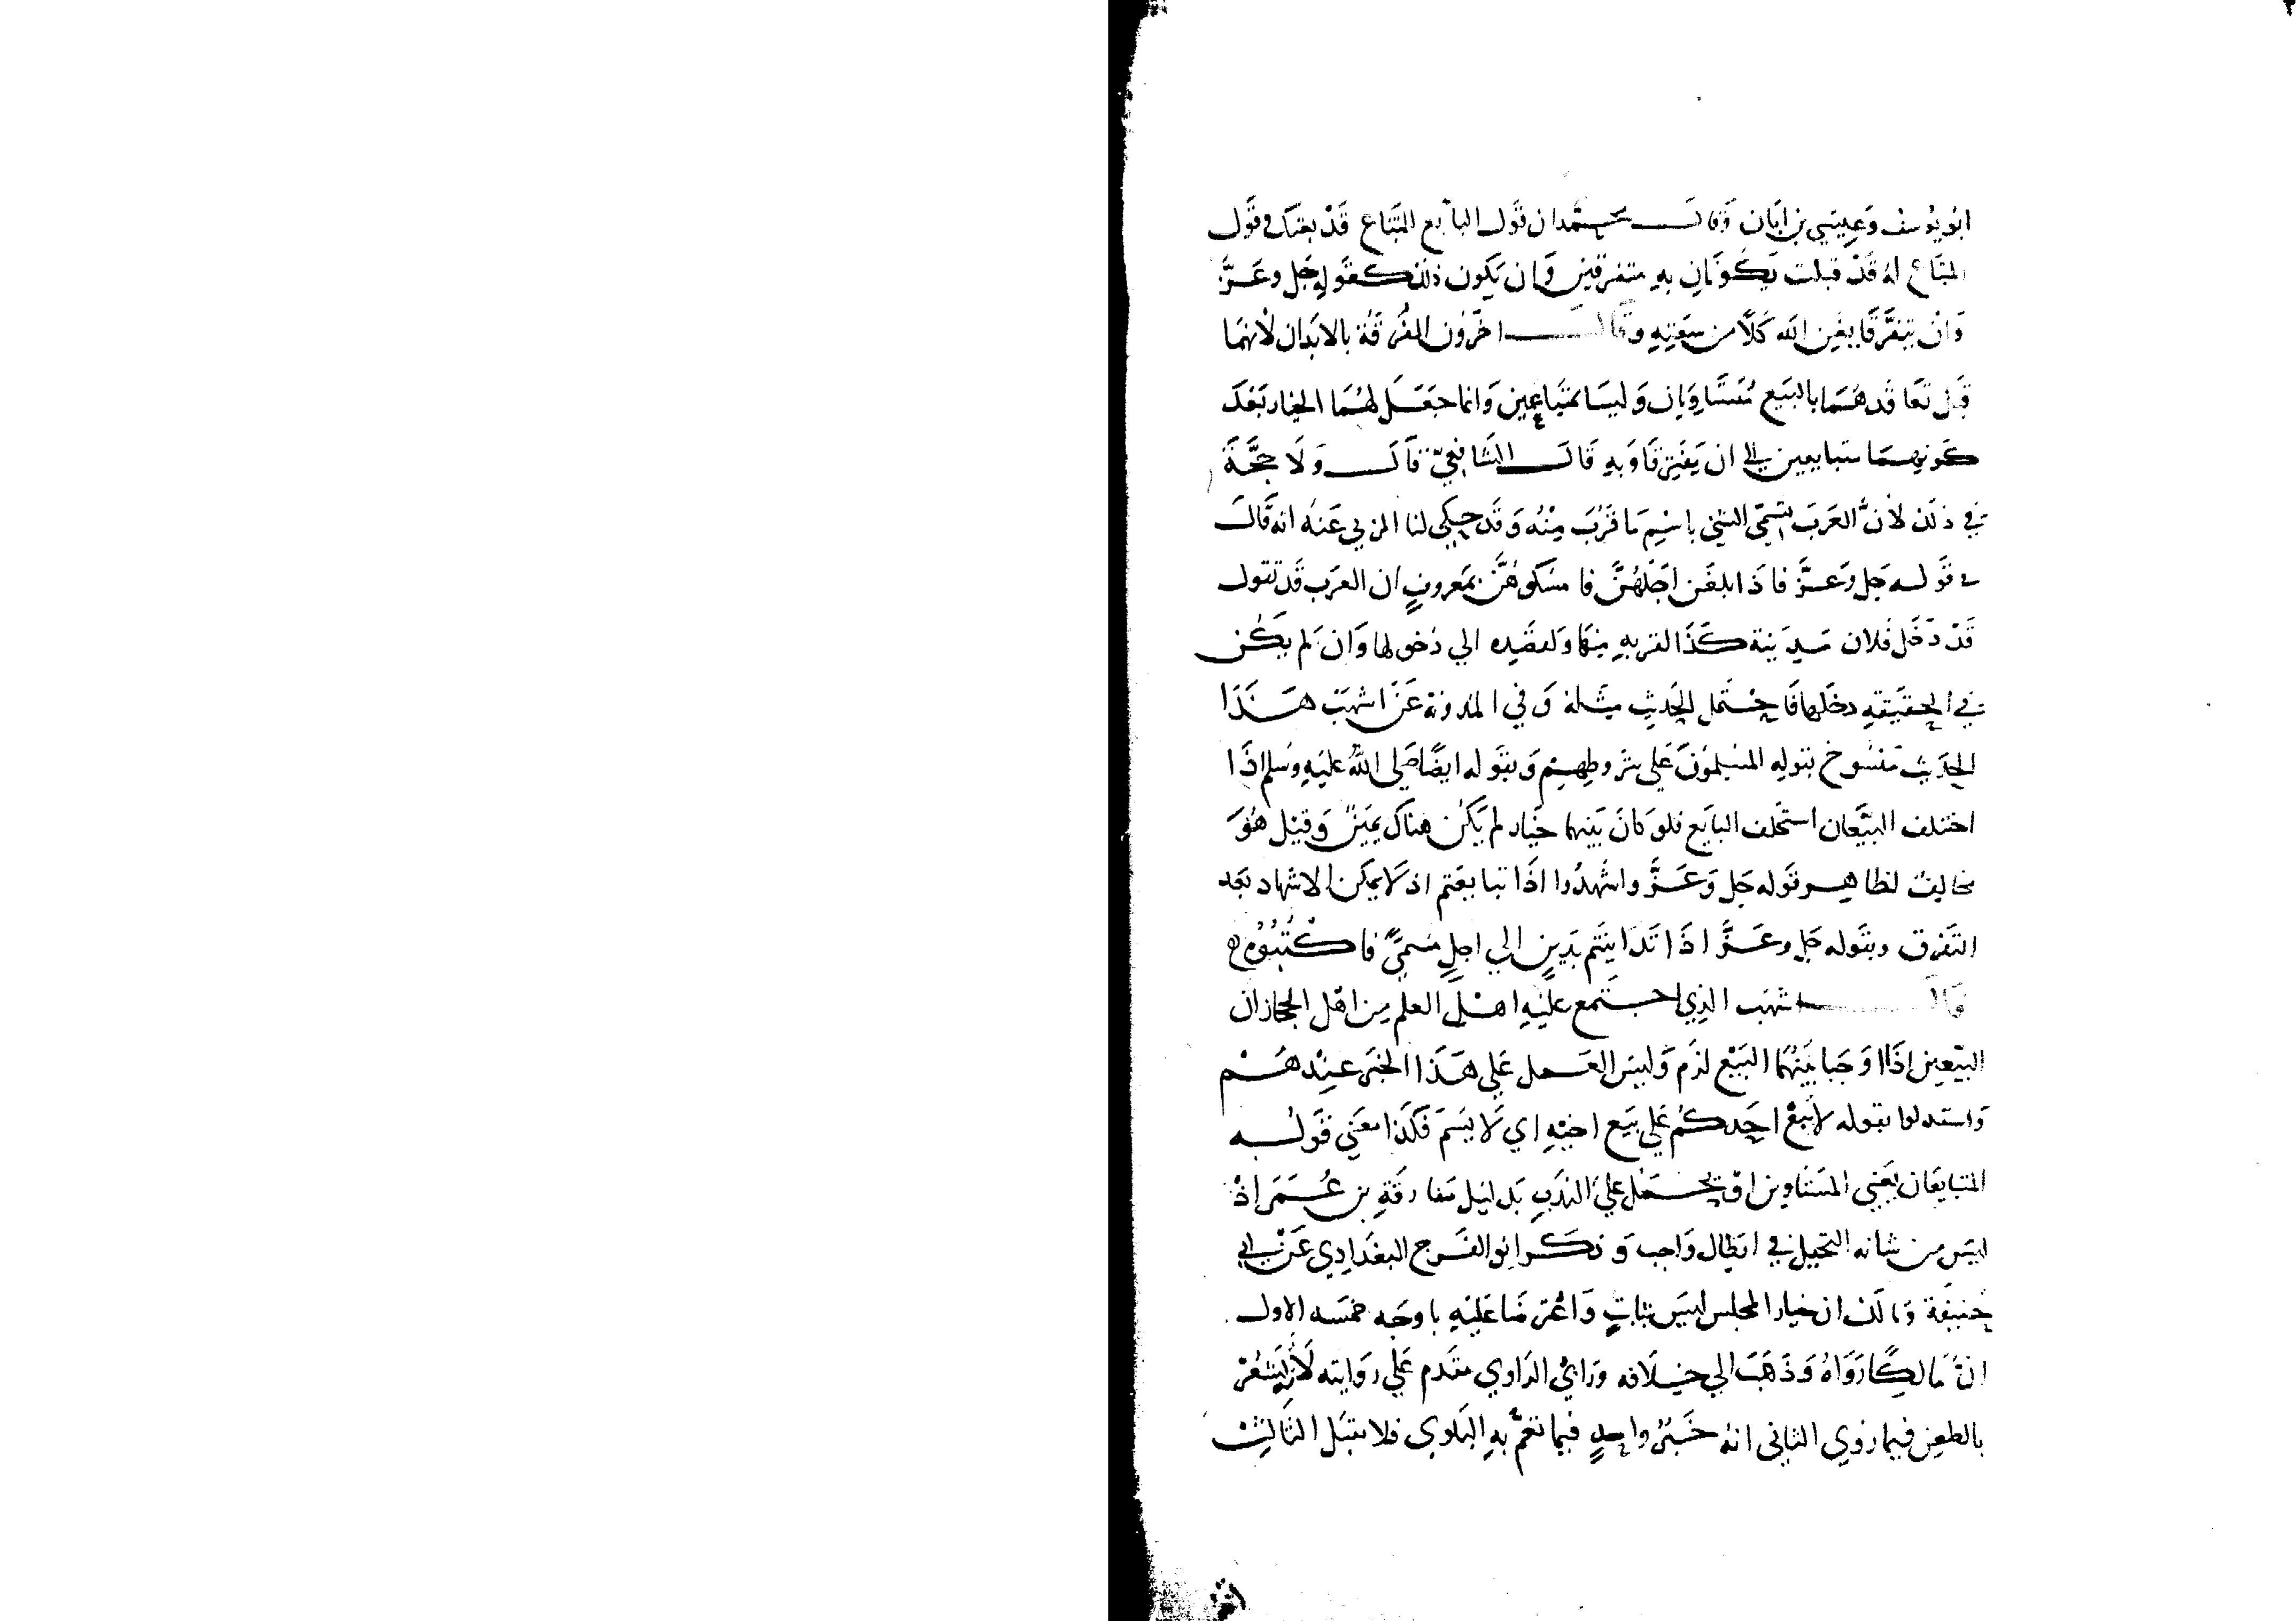 ابُو يُوسُف وَعِيسَي بن ابَان وَقالَ محمّد ان قَول البايع للمبتَاع قَدْ بعتك وقَول
المبتَاع لهُ قَدْ قبلت يَكُونَانِ بهِ متفرقين وَان يَكون ذلك كقَولهِ جَل وعَزَّ
وَانْ يَتفَرَّقَا يغْنِ الله كُلًّا من سِعَتِهِ وقَالَ اخَرُون الفُرقَة بالابَدان لأنهمَا
قبَل تعَاقدهُمَا بالبَيع مُتسَاوِمَان وَليسَا بمتبَايعين وَانما جَعَل لهُمَا الخيار بَعْدَ
كَونِهِمَا متبايعين الي ان يَفتَرقَا وَبهِ قَالَ الشَافِعِيّ قَالَ وَلَا حجَّةَ
في ذلك لأنَّ العَرَب تسَمّي الشي باسْمِ مَا قَرُبَ مِنْهُ وَقَد حكِي لنا المزني عَنهُ انه قَالَ
في قَولهِ جَل وَعَزَّ فاذَا بلغَن اجَلَهُنَّ فامسكوهُنَّ بمَعروفٍ ان العَرَب قَد تقول
قَدْ دَخَل فُلان مَدِينة كَذَا لقربهِ منهَا وَلقصَدِه الي دُخولها وَان لم يكُن
في الحقيقَةِ دخَلها فَاحْتمَل الحَديث مثله وَفي المدَونة عَنَ اشهَبَ هَذَا
الحَديث مَنْسُوخ بقولِهِ المُسْلمُونَ عَلي شرُوطِهِمْ وَبقَوله ايضًا صَلي اللهُ عليَهِ وسَلم اذَا
اختلف البَيّعَان استَحْلف البايَع فلوَ كانَ بَينهما خيَار لم يَكُن هناك يمَيِنٌ وَقيْل هُوَ
مخَالِفٌ لظاهِر قَوله جَل وَعَزَّ واشهدُوا اذَا تبايعَتم اذ لَا يمكن الاشهاد بعَد
التَفرق وبقَوله جَل وعَزَّ اذَا تَدَاينَتم بدَينٍ الي اجلٍ مُسَمّيً فاكْتُبُوْهُ
قَالَ اشهَب الذِي اجتَمع عَليَهِ اهْل العلم مِن اهْل الحجَاز ان
البيّعين اذَا اوجَبا بَيْنهُمَا البَيْع لزَم وَليسَ العَمل عَلي هَذَا الخبَر عِنْدهُمْ
وَاستدلوا بقوله لَا يبَعْ احَدكُم عَلي بيَع اخيهِ اي لَا يسُمَ فَكَذا معَني قَولهِ
المتبايعَان يعَني المتسَاومين او يحْمل عَليَ الندَبِ بَدليَل مفَارقَةِ بن عُمَرَ اذْ
ليسَ من شانه التَحيل في ابطال وَاجب وَذكَر ابو الفَرج البغدَادِي عَنْ ابي
حنيفَة وَمالكَ ان خيار المجلس ليَس بثابتٍ وَاعْترَضا عَليَهِ باوجَه خمسَه الاول
انَّ مَالكًا رَوَاهُ وَذَهَبَ الي خِلَافه ورَايُ الرَاوي مقَدم عَلي روَايته لأنه يَشعُر
بالطعن فيما رَوي الثاني انهُ خَبَرُ واحِدٍ فيما تعمُّ بهِ البَلوي فلا يقبَل الثالِث